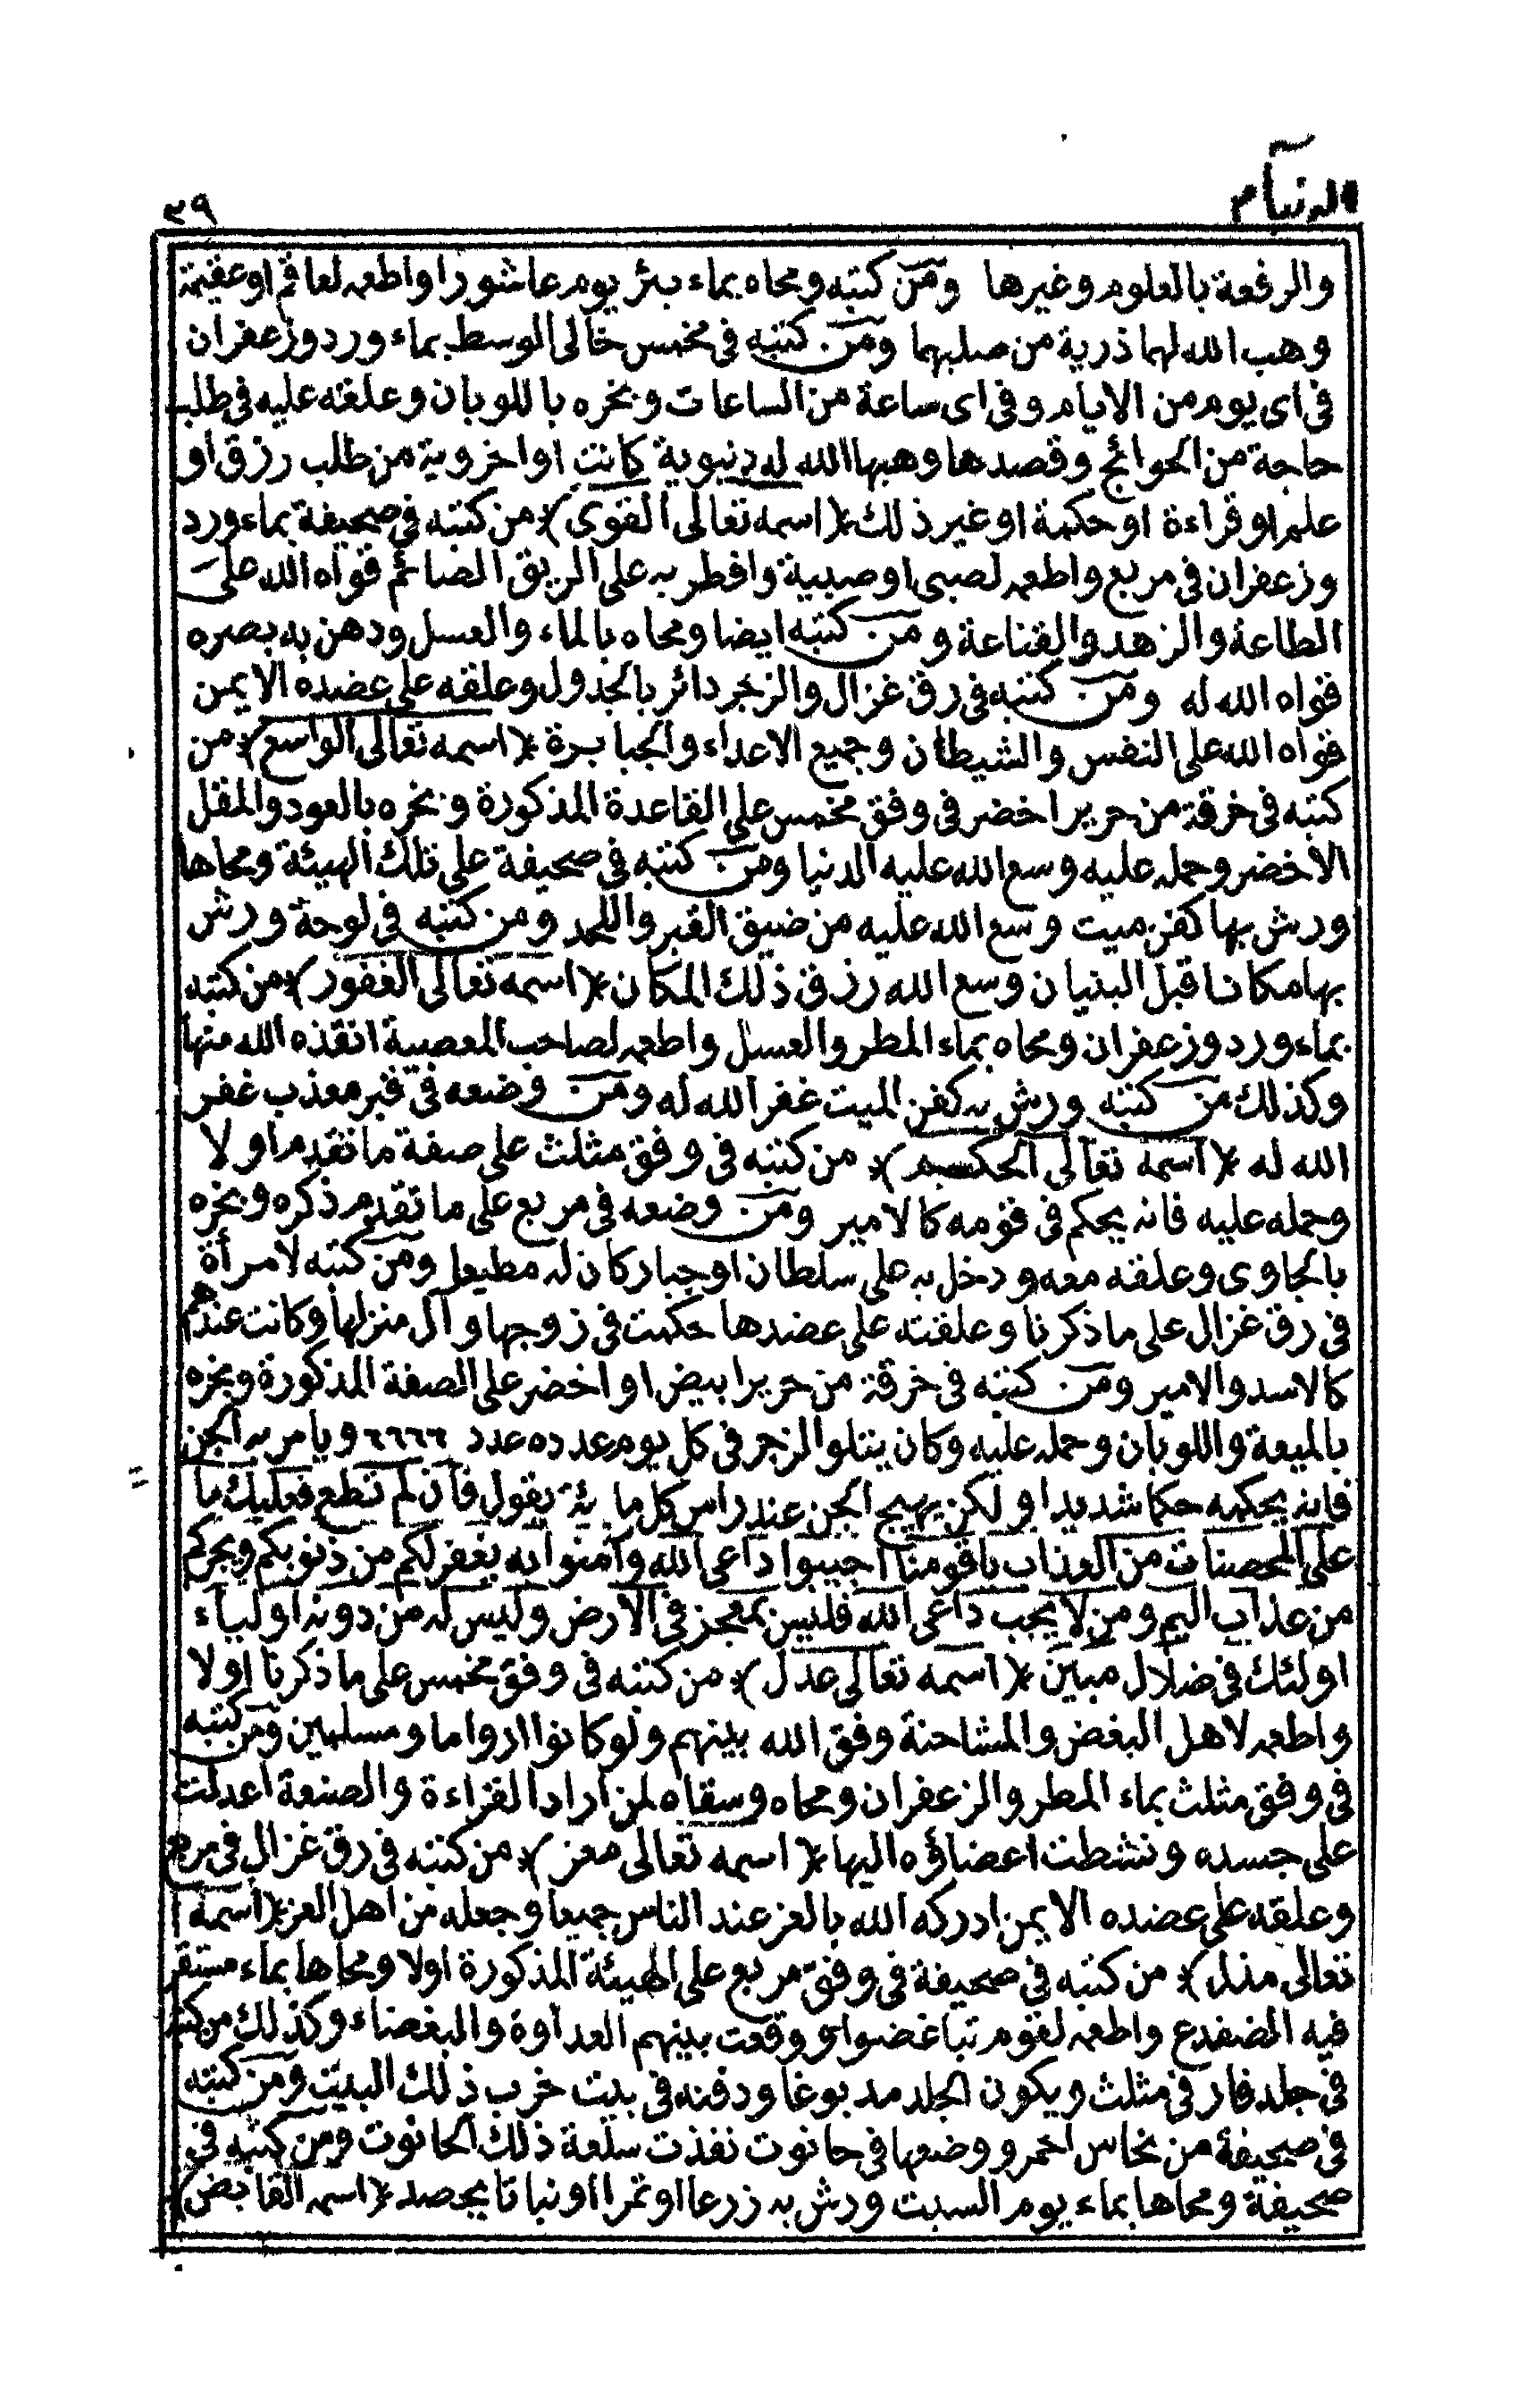 ٣٩
والرفعة بالعلوم وغيرها ومن كتبه ومحاه بماء بئر يوم عاشورا واطعمه لعاقم او عقيمة
وهب الله لهما ذرية من صلبهما ومن كتبه في مخمس خالى الوسط بماء ورد وزعفران
فى اى يوم من الايام وفى اى ساعة من الساعات وبخره باللوبان وعلقه عليه فى طلب
حاجة من الحوائج وقصدها وهبها الله له دنيوية كانت او اخروية من طلب رزق او
علم او قراءة او حكمة او غير ذلك ﴿اسمه تعالى القوى﴾ من كتبه فى صحيفة بماء ورد
وزعفران فى مربع واطعمه لصبى او صبية وافطر به على الريق الصائم قواه الله على
الطاعة والزهد والقناعة ومن كتبه ايضا ومحاه بالماء والعسل ودهن به بصره
قواه الله له ومن كتبه فى رق غزال والزجر دائر بالجدول وعلقه على عضده الايمن
قواه الله على النفس والشيطان وجميع الاعداء والجبابرة ﴿اسمه تعالى الواسع﴾ من
كتبه فى خرقة من حرير اخضر فى وفق مخمس على القاعدة المذكورة وبخره بالعود والمقل
الاخضر وحمله عليه وسع الله عليه الدنيا ومن كتبه فى صحيفة على تلك الهيئة ومحاها
ورش بها كفن ميت وسع الله عليه من ضيق القبر واللحد ومن كتبه فى لوحة ورش
بها مكانا قبل البنيان وسع الله رزق ذلك المكان ﴿اسمه تعالى الغفور﴾ من كتبه
بماء ورد وزعفران ومحاه بماء المطر والعسل واطعمه لصاحب المعصية انقذه الله منها
وكذلك من كتبه ورش به كفن الميت غفر الله له ومن وضعه فى قبر معذب غفر
الله له ﴿اسمه تعالى الحكيم﴾ من كتبه فى وفق مثلث على صفة ما تقدم اولا
وحمله عليه فانه يحكم فى قومه كالامير ومن وضعه فى مربع على ما تقدم ذكره وبخره
بالجاوى وعلقه معه ودخل به على سلطان او جبار كان له مطيعا ومن كتبه لامرأة
فى رق غزال على ما ذكرنا وعلقته على عضدها حكمت فى زوجها وآل منزلها وكانت عندهم
كالاسد والامير ومن كتبه فى خرقة من حرير ابيض او اخضر على الصفة المذكورة وبخره
بالميعة واللوبان وحمله عليه وكان يتلو الزجر فى كل يوم عدده عدد ٦٦٦٦ ويامر به الجن
فانه يحكمه حكما شديدا ولكن يهيج الجن عند راس كل يقول فان لم تطع فعليك ما
على المحصنات من العذاب يا قومنا اجيبوا داعى الله وآمنوا به يغفر لكم من ذنوبكم ويجركم
من عذاب اليم ومن لا يجب داعى الله فليس بمعجز فى الارض وليس له من دونه اولياء
اولئك فى ضلال مبين ﴿اسمه تعالى عدل﴾ من كتبه فى وفق مخمس على ما ذكرنا اولا
واطعمه لاهل البغض والمشاحنة وفق الله بينهم ولو كانوا ارواما ومسلمين ومن كتبه
فى وفق مثلث بماء المطر والزعفران ومحاه وسقاه لمن اراد القراءة والصنعة اعدلت
على جسده ونشطت اعضاؤه اليها ﴿اسمه تعالى معز﴾ من كتبه فى رق غزال فى مربع
وعلقه على عضده الايمن ادركه الله بالعز عند الناس جميعا وجعله من اهل العز ﴿اسمه
تعالى مذل﴾ من كتبه فى صحيفة فى وفق مربع على الهيئة المذكورة اولا ومحاها بماء مستقر
فيه الضفدع واطعمه لقوم تباغضوا ووقعت بينهم العداوة والبغضاء وكذلك من كتبه
فى جلد فار فى مثلث ويكون الجلد مدبوغا ودفنه فى بيت خرب ذلك البيت ومن كتبه
فى صحيفة من نحاس احمر ووضعها فى حانوت نفذت سلعة ذلك الحانوت ومن كتبه فى
صحيفة ومحاها بماء يوم السبت ورش به زرعا او تمرا او نباتا يحصد ﴿اسمه القابض﴾